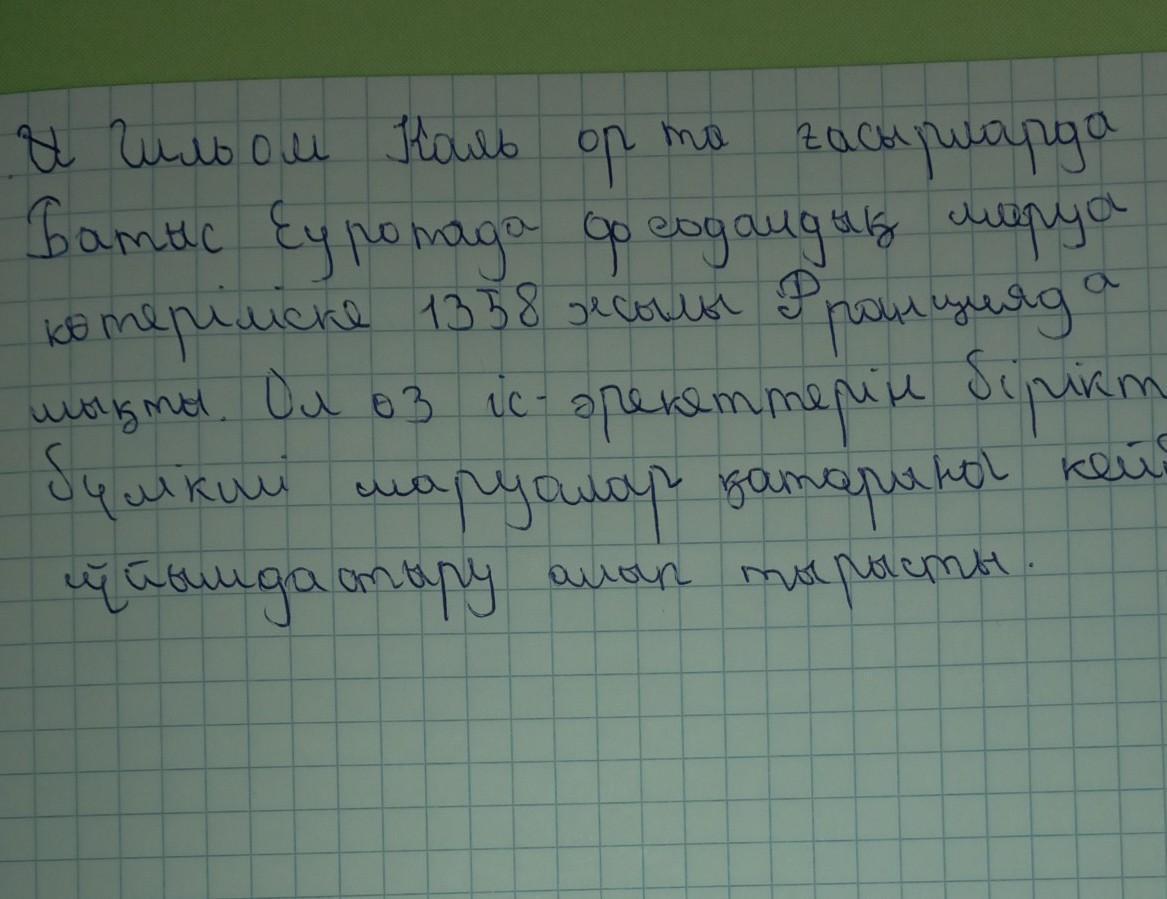 Гильом Каль орта ғасырларда
Батыс Еуропада феодалдық шаруа
көтеріліске 1358 жылы Францияда
шықты. Ол өз іс-әрекеттерін бірікт
бүлікші шаруалар қатарына кей
ұйымдастыру алып тырысты.